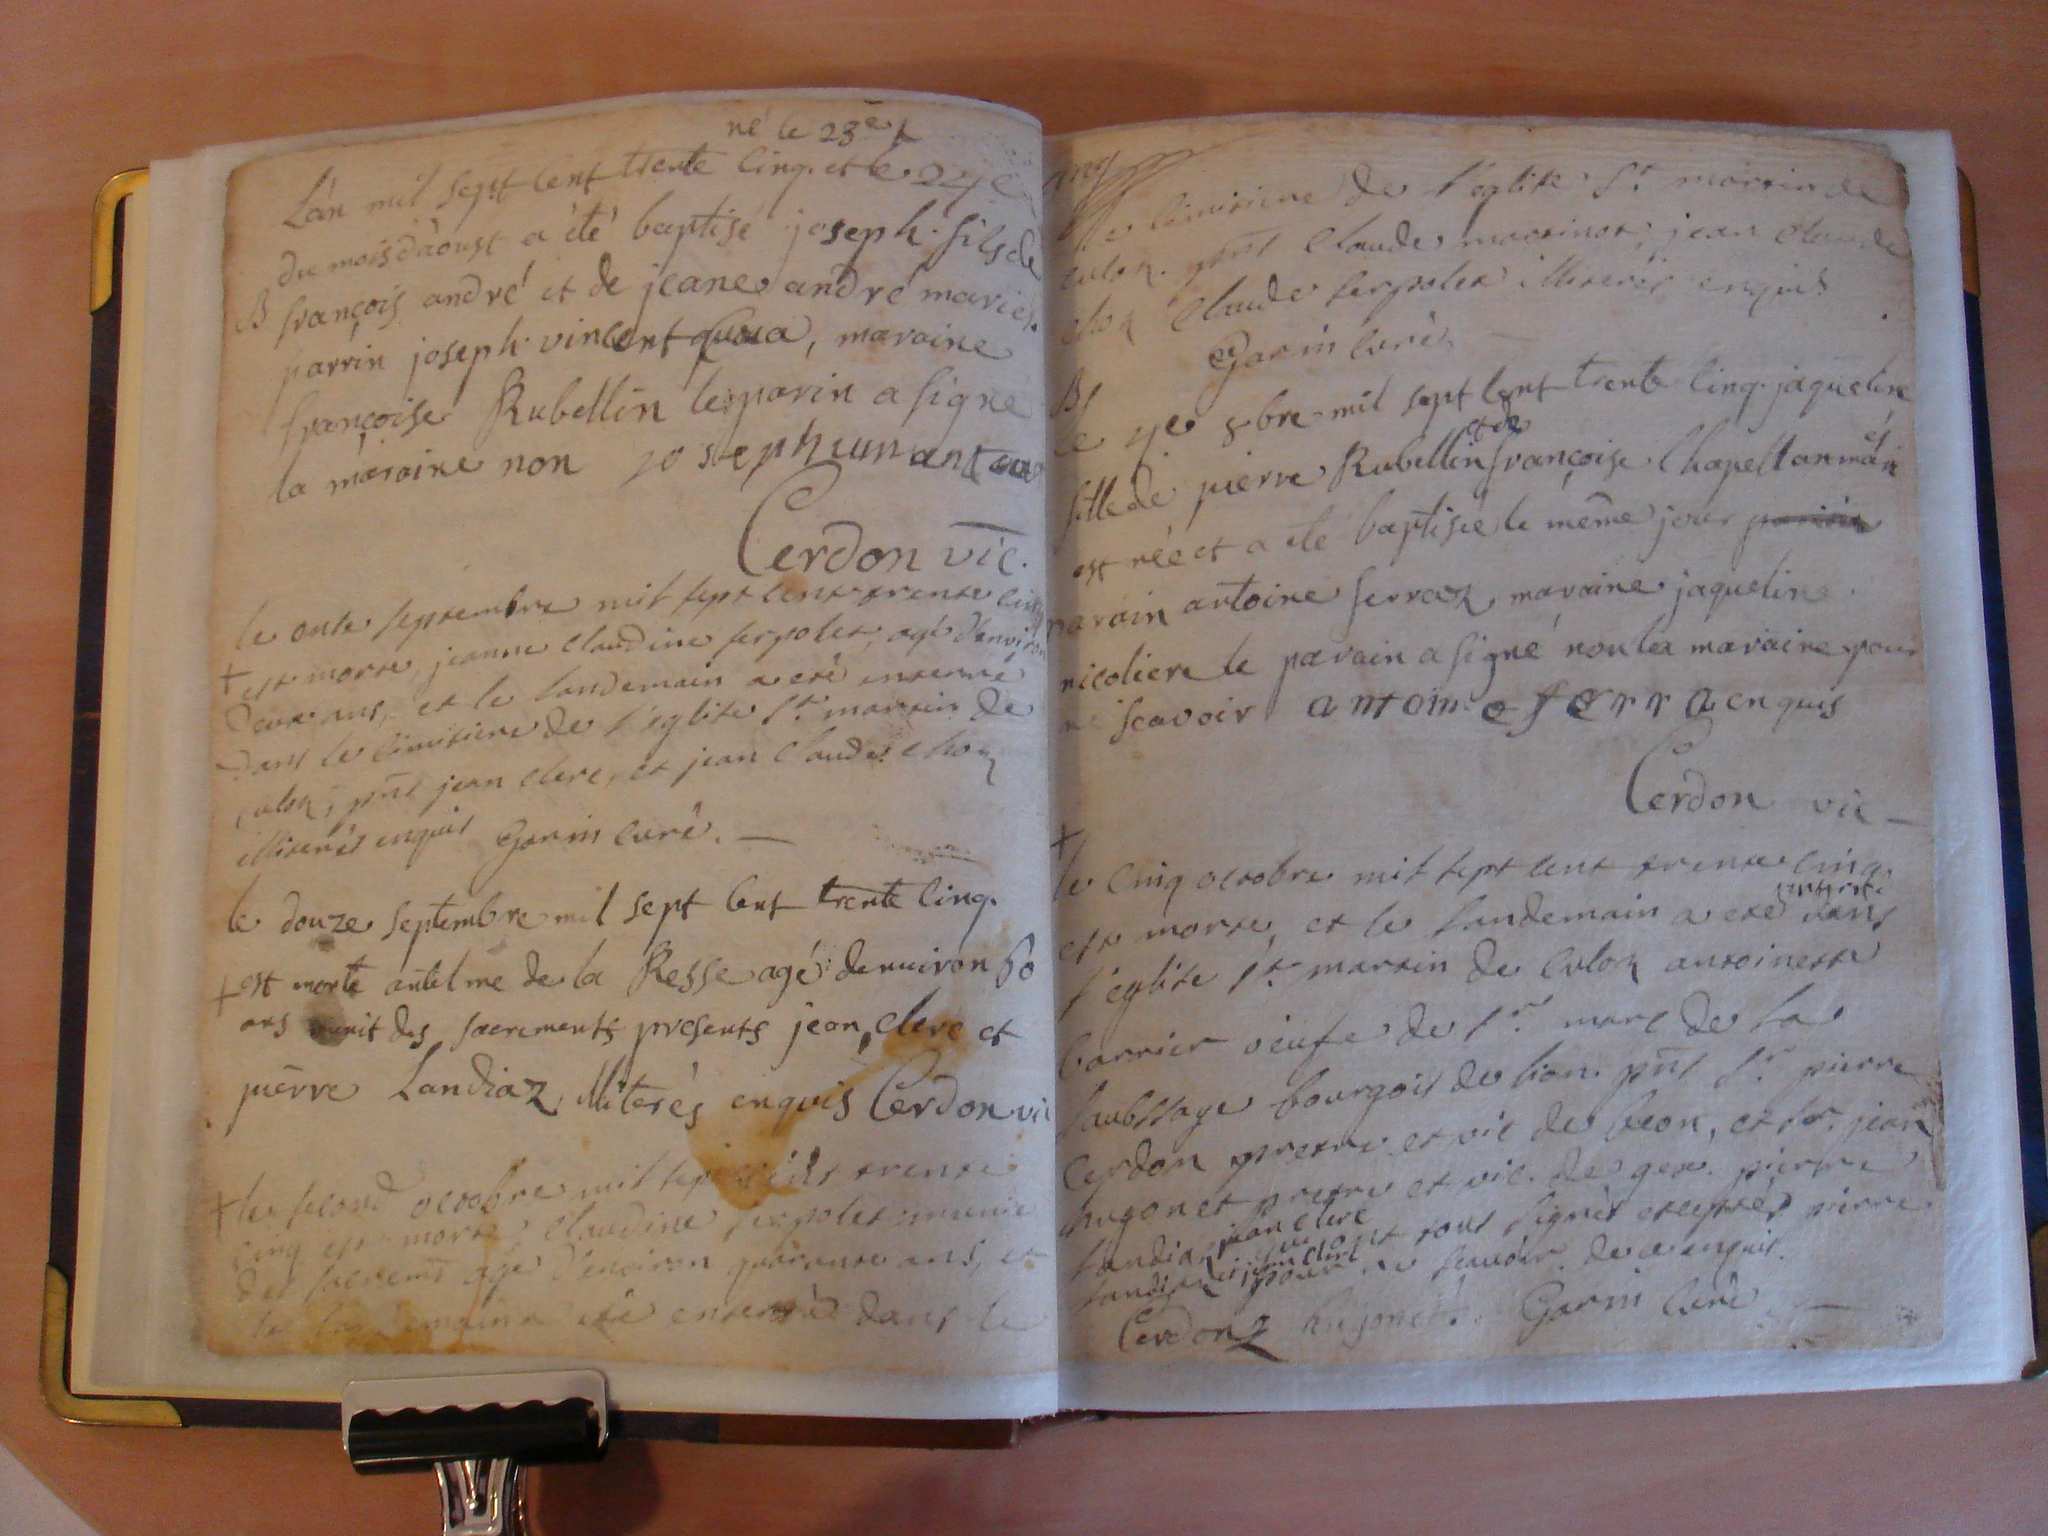 né le 23e
Lán mil sept cent trente cinq. et le 24e
du mois d'àoust a été baptisé joseph fils de
B françois andré et de jeane andré mariés.
parrin joseph vincent, maraine
françoise Rubellin le parin a signé
la màraine non joseph
Cerdon vic.
le onze septembre mil sept cent trente cinq
+ est morte, jeanne claudine serpolet, agé d'environ
deux ans, et le landemain a eté enterré
dans le cimitiere de l'eglise St. martin de
culoz, pñt jean clerc, et jean claude choz
illiterés enquis Garin curé. —
le douze septembre mil sept cent trente cinq.
+ est morte antelme de la Resse agé denuiron
ans munit des sacrements presents jean clerc et
pierre Landiaz illiterés enquis Cerdon vic
+ le second octobre mil sept cents trente
cinq est morte claudine serpolet munie
des sacremts agé d'environ quarante ans, et
le landemain a été enterré dans le
cimitiere de l'eglise St. martin de
culoz. pñts claude martinot, jean claude
choz claude serpolet illiterés enquis
Garin curé.
B
le 4e 8bre mil sept cent trente cinq. jaqueline
fille de pierre Rubellin et de françoise Chapellan mariés
est née et a été baptisée le même jour parrin
parain antoine ferraz maraine jaqueline
nicoliere le parain a signé non la maraine pour
ne scavoir antoine ferra enquis
Cerdon vic —
+
le cinq octobre mil sept cent trente cinq
est morte, et le landemain a eté enterré dans
l'église St. martin de culoz antoinette
Carrier veufe de Sr. marc de la
saubssaye bourgois de lion. pñts Sr. pierre
Cerdon pretre et vic de beon, et Sr. jean
hugonet pretre et vic. de gex. pierre
Landiaz jean clerc qui ont tous signés exceptés pierre
landiaz et jean clerc pour ne scavoir de ce enquis.
Cerdon hugonet. Garin curé. —